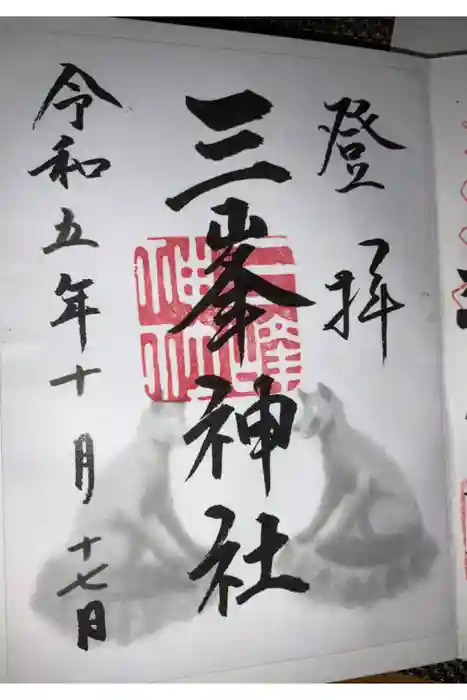 登拝
三峯神社
令和五年十月十七日